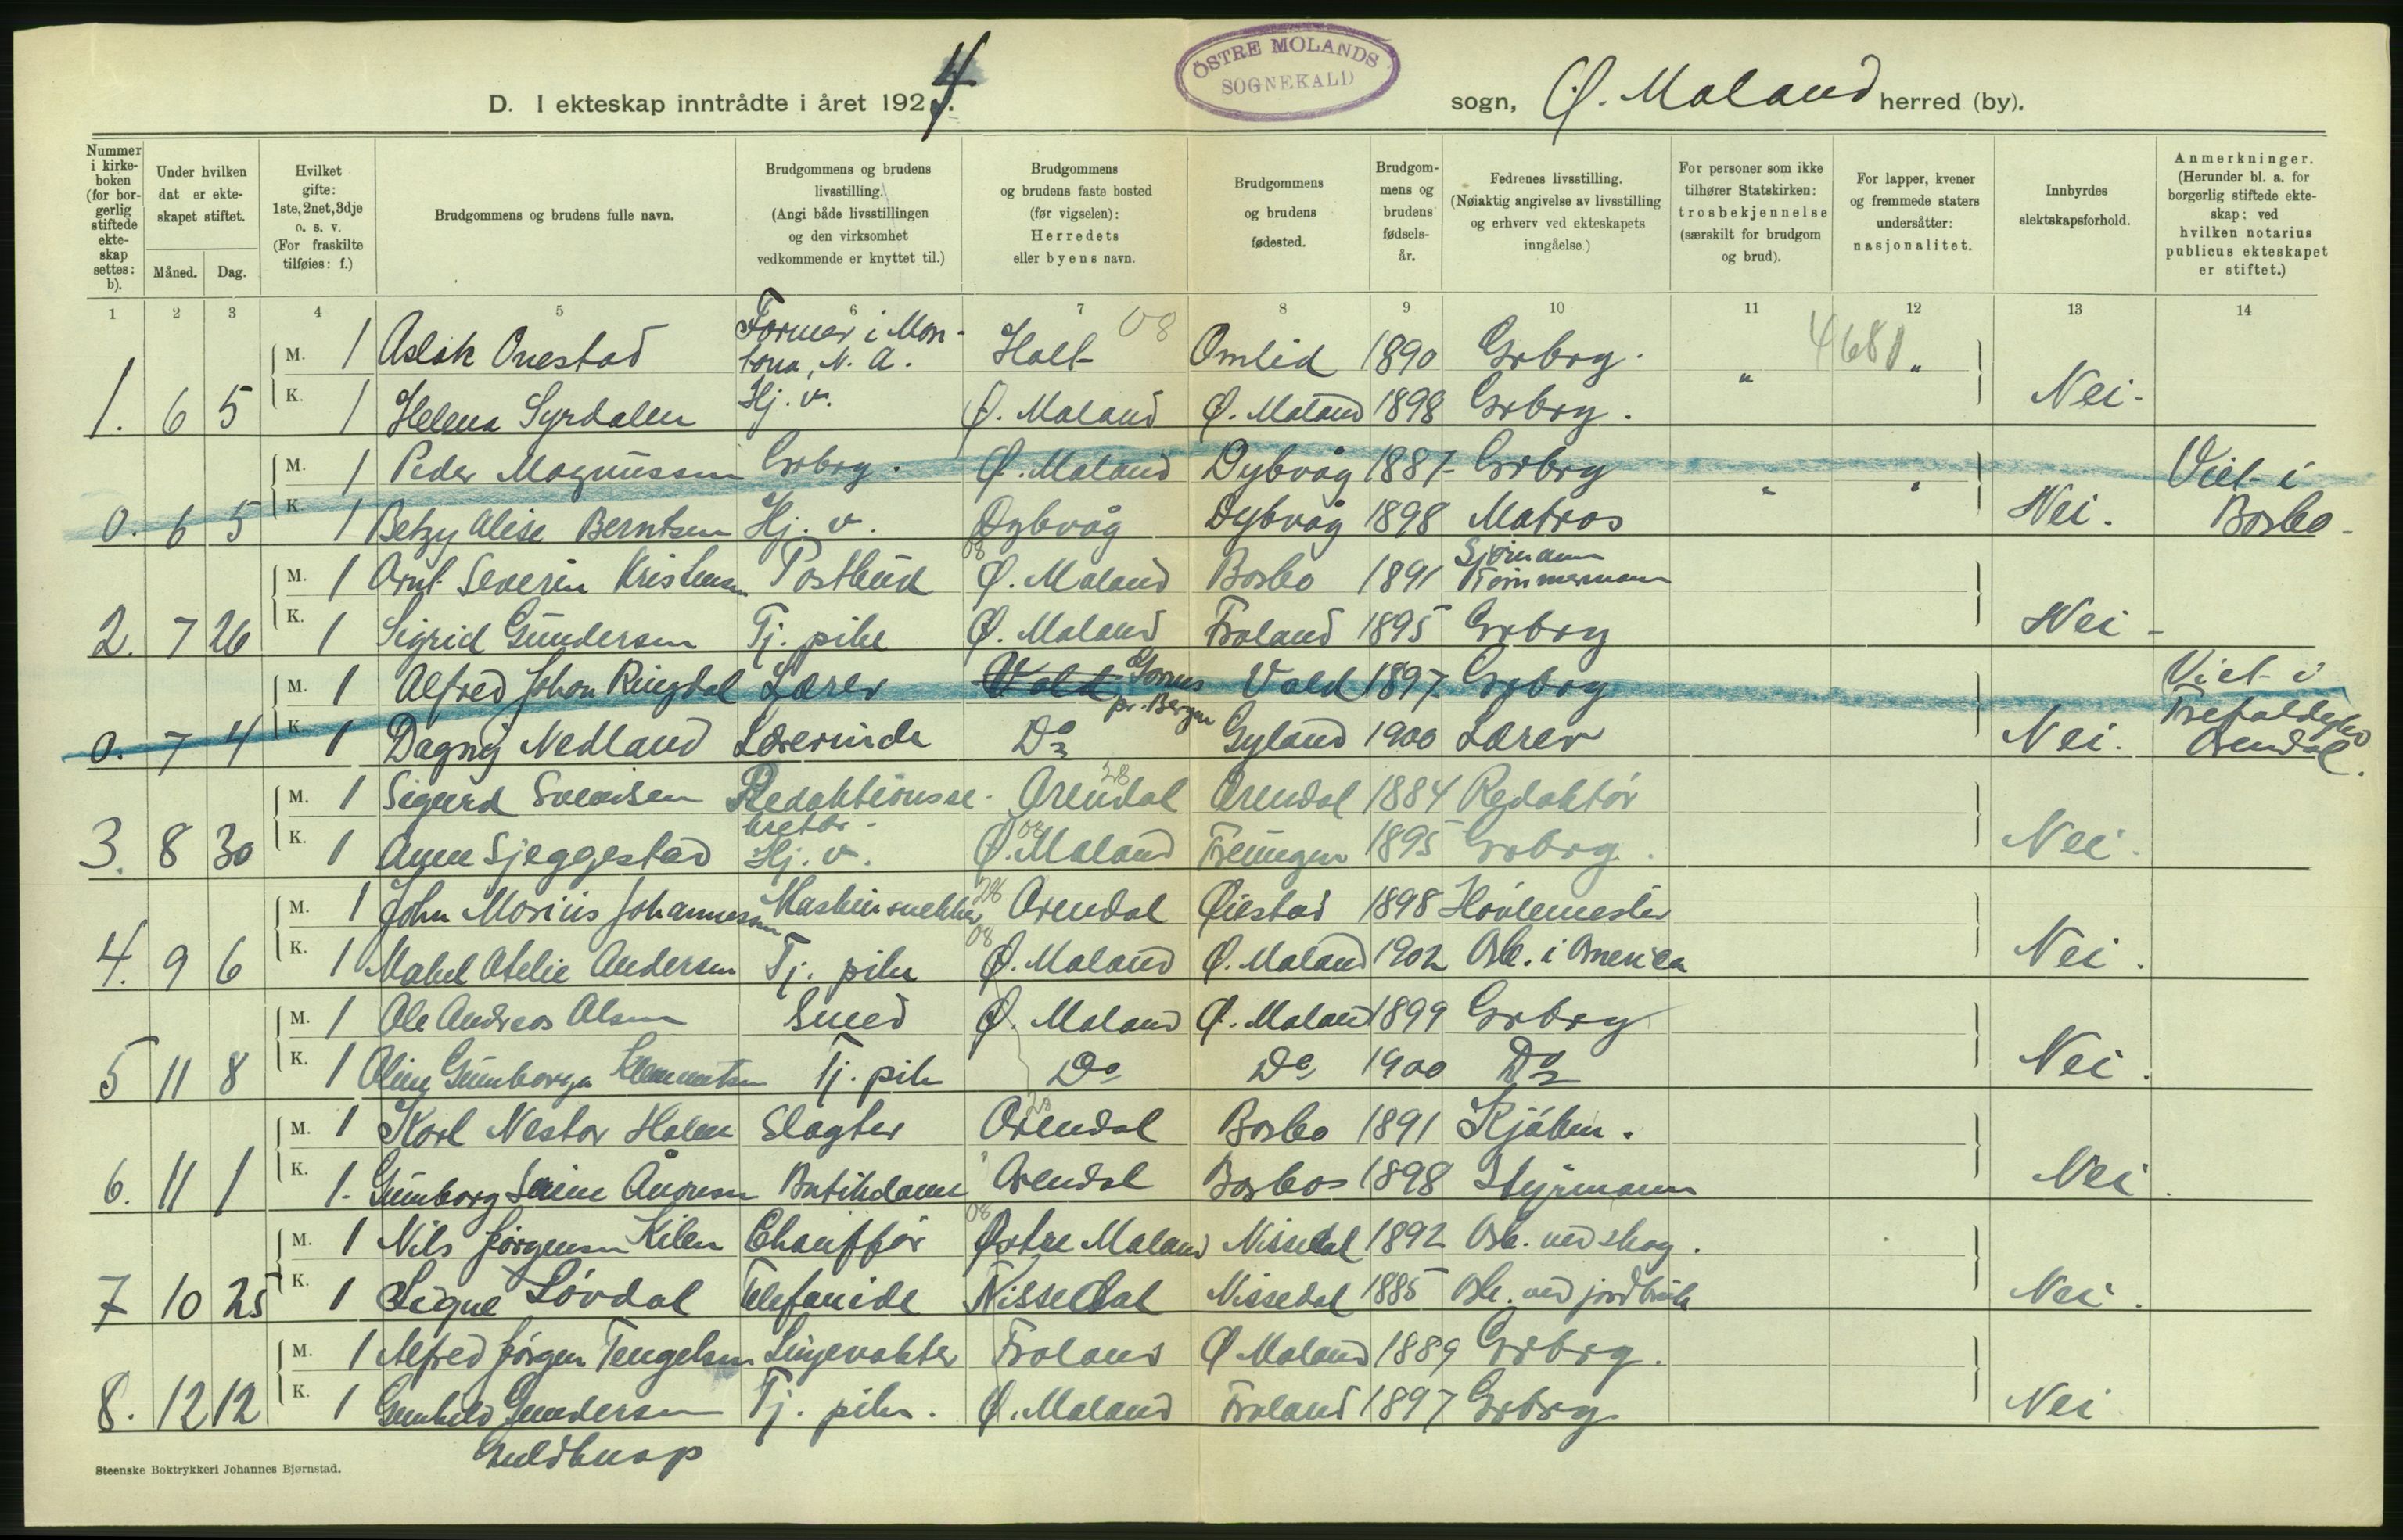 ÖSTRE MOLANDS
SOGNEKALD
D. I ekteskap inntrådte i året 1924.
sogn, Ø. Moland herred (by).
Nummer i kirkeboken (for borgerlig stiftede ekteskap settes: b).
Under hvilken dat er ekteskapet stiftet.
Måned. Dag.
Hvilket gifte: 1ste, 2net, 3dje o. s. v. (For fraskilte tilføies: f.)
Brudgommens og brudens fulle navn.
Brudgommens og brudens livsstilling. (Angi både livsstillingen og den virksomhet vedkommende er knyttet til.)
Brudgommens og brudens faste bosted (før vigselen): Herredets eller byens navn.
Brudgommens og brudens fødested.
Brudgommens og brudens fødselsår.
Fedrenes livsstilling. (Nøiaktig angivelse av livsstilling og erhverv ved ekteskapets inngåelse.)
For personer som ikke tilhører Statskirken: trosbekjennelse (særskilt for brudgom og brud).
For lapper, kvener og fremmede staters undersåtter: nasjonalitet.
Innbyrdes slektskapsforhold.
Anmerkninger. (Herunder bl. a. for borgerlig stiftede ekteskap: ved hvilken notarius publicus ekteskapet er stiftet.)
1 2 3 4 5 6 7 8 9 10 11 12 13 14
M. 1 Aslak Onestad Farmer i Montona, N. A. Holt 08 Omlid 1890 Grbrg. 4680 "
1. 6 5 K. 1 Helena Syrdalen Hj. v. Ø. Moland Ø. Moland 1898 Grbrg. " Nei.
M. 1 Peder Magnussen Grbrg. Ø. Moland Dybvåg 1887 Grbrg Viet i
0. 6 5 K 1 Betzy Alise Berntsen Hj. v. Dybvåg Dybvåg 1898 Matros " " Nei. Barbo
M. 1 Arnt Severin Kristensen Postbud 08 Ø. Moland Barbo 1891 Sjømann Tømmermann
2. 7 26 K. 1 Sigrid Gundersen Tj. pike Ø. Moland Froland 1895 Grbrg Nei
M. 1 Alfred Johan Ringdal Lærer Vald pr. Bergen Vald 1897 Grbrg Viet i
0. 7 4 K 1 Dagny Nedland Lærerinde Do Gyland 1900 Lærer Nei. Arendal.
M. 1 Sigurd Svendsen Redaktionssekretær 28 Arendal Arendal 1884 Redaktør
3. 8 30 K. 1 Anne Sjeggestad Hj. v. 08 Ø. Moland 1895 Grbrg. Nei.
M. 1 John Marius Johannesen Maskinsnekker 28 Arendal Øiestad 1898 Høvlemester
4. 9 6 K. 1 Mabel Atelie Andersen Tj. pike 08 Ø. Moland Ø. Moland 1902 Arb. i America Nei.
M. 1 Ole Andreas Olsen Smed Ø. Moland Ø. Moland 1899 Grbrg
5 11 8 K. 1 Oline Gunborga Klemmetsen Tj. pike Do Do 1900 Do Nei.
M. 1 Karl Nestor Holm Slagter 28 Arendal Barbo 1891 Kjøbm.
6. 11 1 K. 1. Gunborg Severine Åonsen Butikdame Arendal Barbo 1898 Styrmann Nei.
M. 1 Nils Jørgensen Kilen Chauffør 08 Østre Moland Nissedal 1892 Arb. ved skog.
7 10 25 K. 1 Signe Løvdal Telefonide Nissedal Nissedal 1885 Arb. ved jordbruk Nei.
M. 1 Alfred Jørgen Tengelsen Linjevokter Froland Ø Moland 1889 Grbrg.
8. 12 12 K. 1 Gunhild Gundersen Tj. pike. Ø. Moland Froland 1897 Grbrg. Nei
Guldknap
Steenske Boktrykkeri Johannes Bjørnstad.